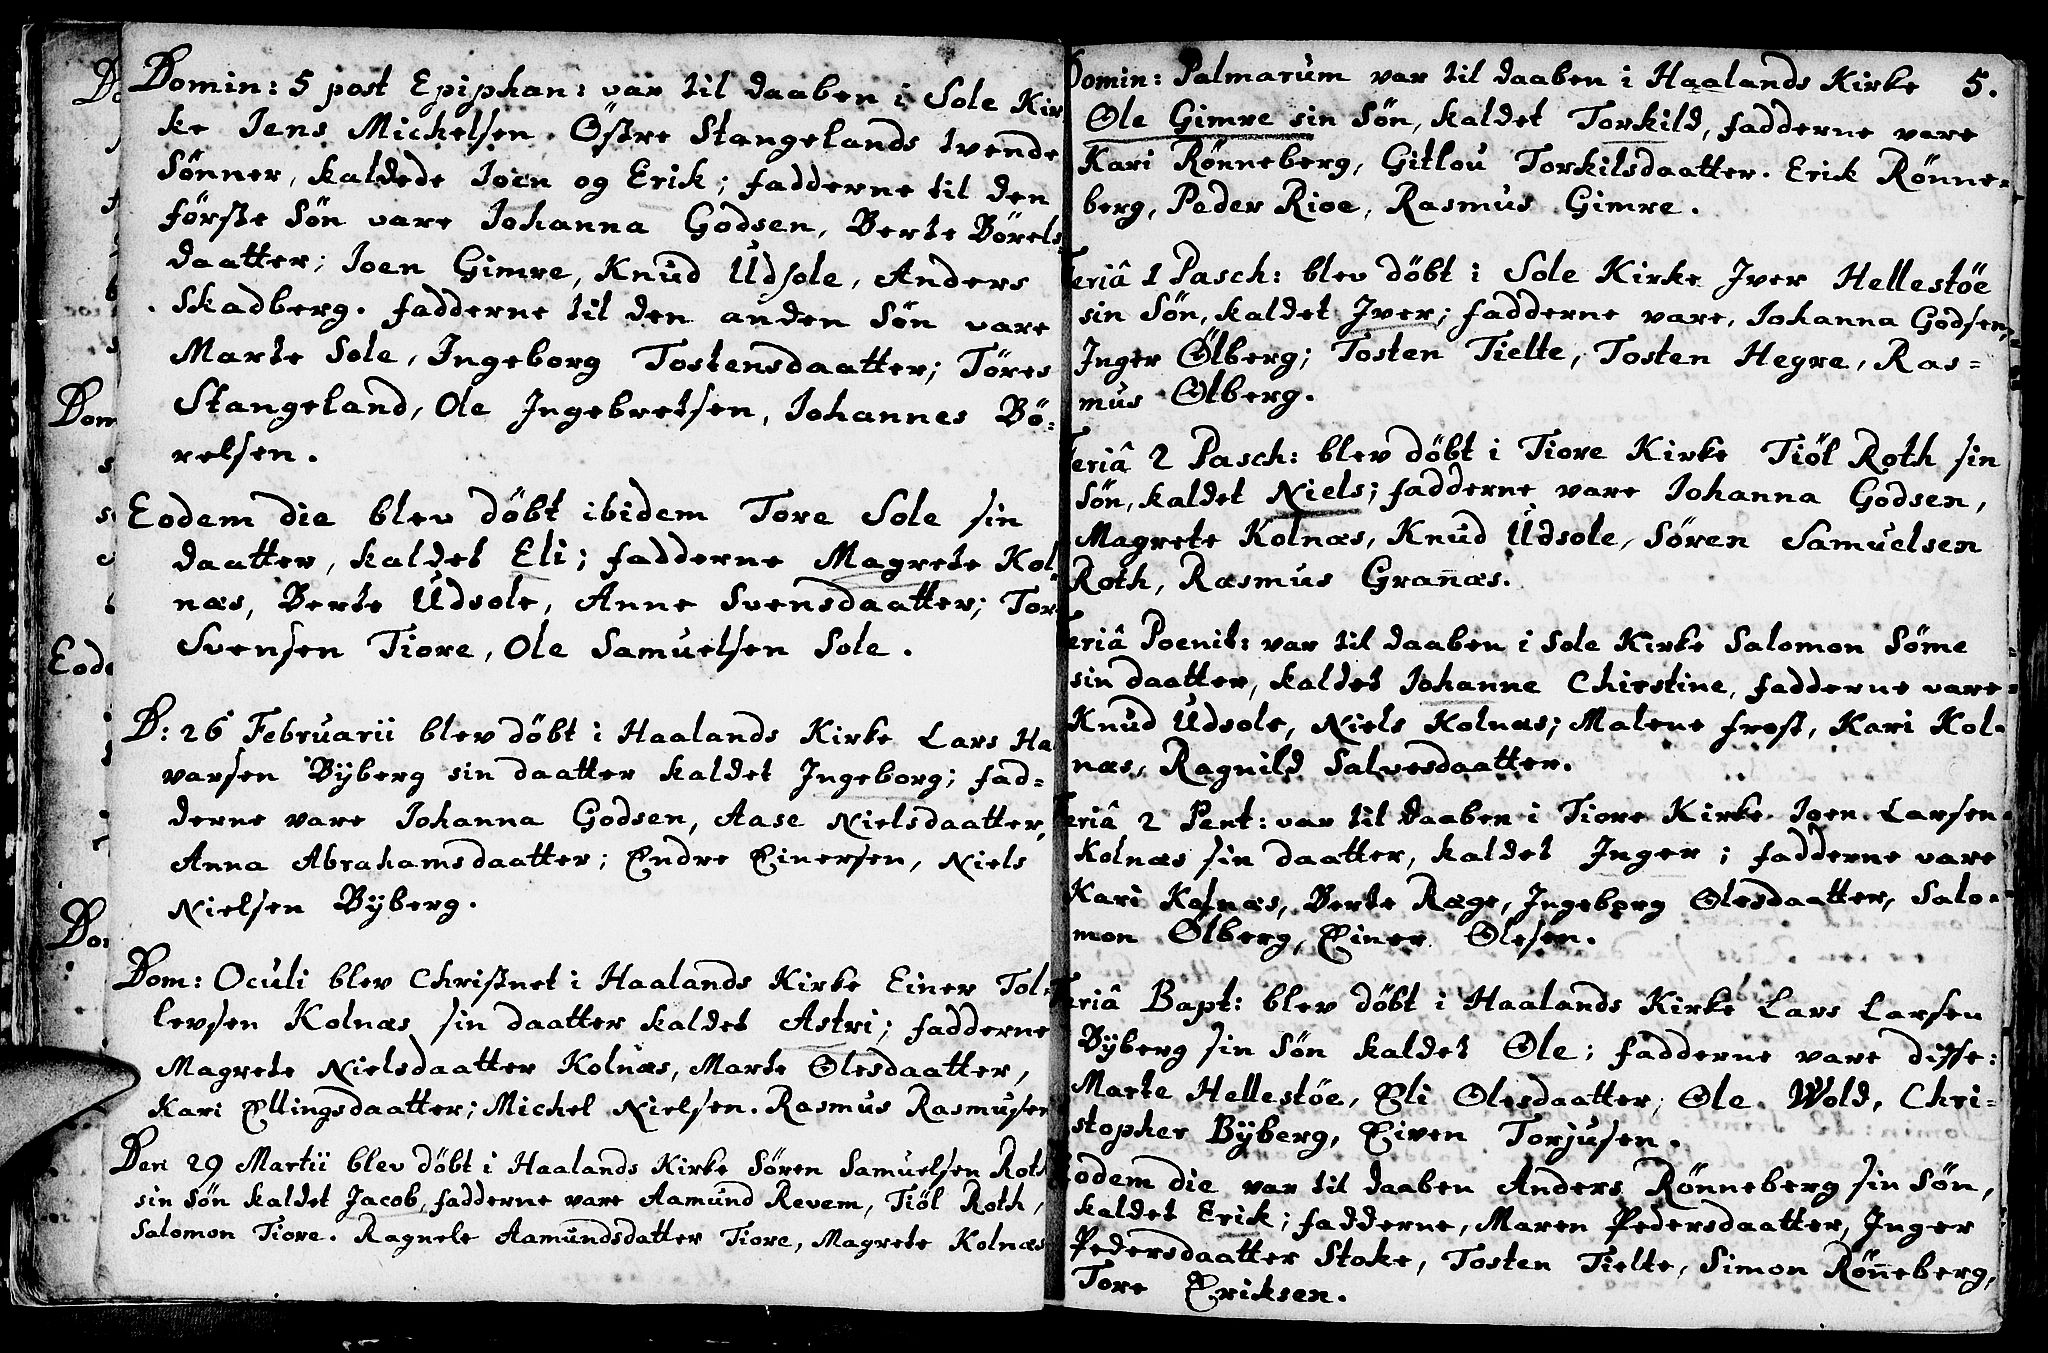 Domin: 5 post Epiphan: var til daaben i Sole Kir
ke Jens Michelsen Östre Stangelands tvende
Sönner, kaldede Joen og Erik; fadderne til den
förste Sön vare Johanna Godsen, Berte Börels
daatter; Joen Gimre, Knud Udsole, Anders
Skadberg. fadderne til den anden Sön vare
Marte Sole, Ingeborg Tostensdaatter; Töres
Stangeland, Ole Ingebretsen, Johannes Bö=
relsen.
Eodem die blev döbt ibidem Tore Sole sin
daatter, kaldet Eli; fadderne Magrete Kol
næs, Berte Udsole, Anne Svensdaatter; Tor
Svensen Tiore, Ole Samuelsen Sole.
D: 26 Februarii blev döbt i Haalands Kirke Lars Ha
varsen Bÿberg sin daatter kaldet Ingeborg; fad=
derne vare Johanna Godsen, Aase Nielsdaatter,
Anna Abrahamsdaatter; Endre Einersen, Niels
Nielsen Bÿberg.
Dom: Oculi blev Christnet i Haalands Kirke Einer Tol
levsen Kolnæs sin daatter kaldet Astri; fadderne
Magrete Nielsdaatter Kolnæs, Marte Olesdaatter,
Kari Ellingsdaatter; Michel Nielsen. Rasmus Rasmusen
Den 29 Martii blev döbt i Haalands Kirke Sören Samuelsen Roth
sin Sön kaldet Jacob, fadderne vare Aamund Revem, Tiöl Roth,
Salomon Tiore. Ragnele Aamundsdatter Tiore, Magrete Kolnæs
Domin: Palmarum var til daaben i Haalands Kirke 5.
Ole Gimre sin Sön, kaldet Torkild, fadderne vare
Kari Rönneberg, Gitlou Torkilsdaatter. Erik Rönne=
berg, Peder Rioe, Rasmus Gimre.
Feriâ 1 Pasch: blev döbt i Sole Kirke Iver Hellestöe
sin Sön, kaldet Iver; fadderne vare, Johanna Godsen,
Inger Ölberg; Tosten Tielte, Tosten Hegre, Ras=
mus Ölberg.
Feriâ 2 Pasch: blev döbt i Tiore Kirke Tiöl Roth sin
Sön, kaldet Niels; fadderne vare Johanna Godsen,
Magrete Kolnæs, Knud Udsole, Sören Samuelsen
Roth, Rasmus Grañæs.
Feriâ Poenit: var til daaben i Sole Kirke Salomon Söme
sin daatter, kaldet Johanne Chirstine, fadderne vare
Knud Udsole, Niels Kolnæs; Malene frost, Kari Kol=
næs, Ragnild Salvesdaatter.
Feriâ 2 Pent: var til daaben i Tiore Kirke Joen Larsen
Kolnæs sin daatter, kaldet Inger; fadderne vare
Kari Kolnæs, Berte Ræge, Ingeborg Olesdaatter, Salo=
mon Ölberg, Einer Olesen.
Feriâ Bapt: blev döbt i Haalands Kirke Lars Larsen
Bÿberg sin Sön kaldet Ole; fadderne vare disse:
Marte Hellestöe, Eli Olesdaatter; Ole Wold, Chri=
stopher Bÿberg, Eiven Torjusen.
Eodem die var til daaben Anders Rönneberg sin Sön,
kaldet Erik; fadderne, Maren Pedersdaatter, Inger
Pedersdaatter Stoke, Tosten Tielte, Simon Röñeberg,
Tore Eriksen.